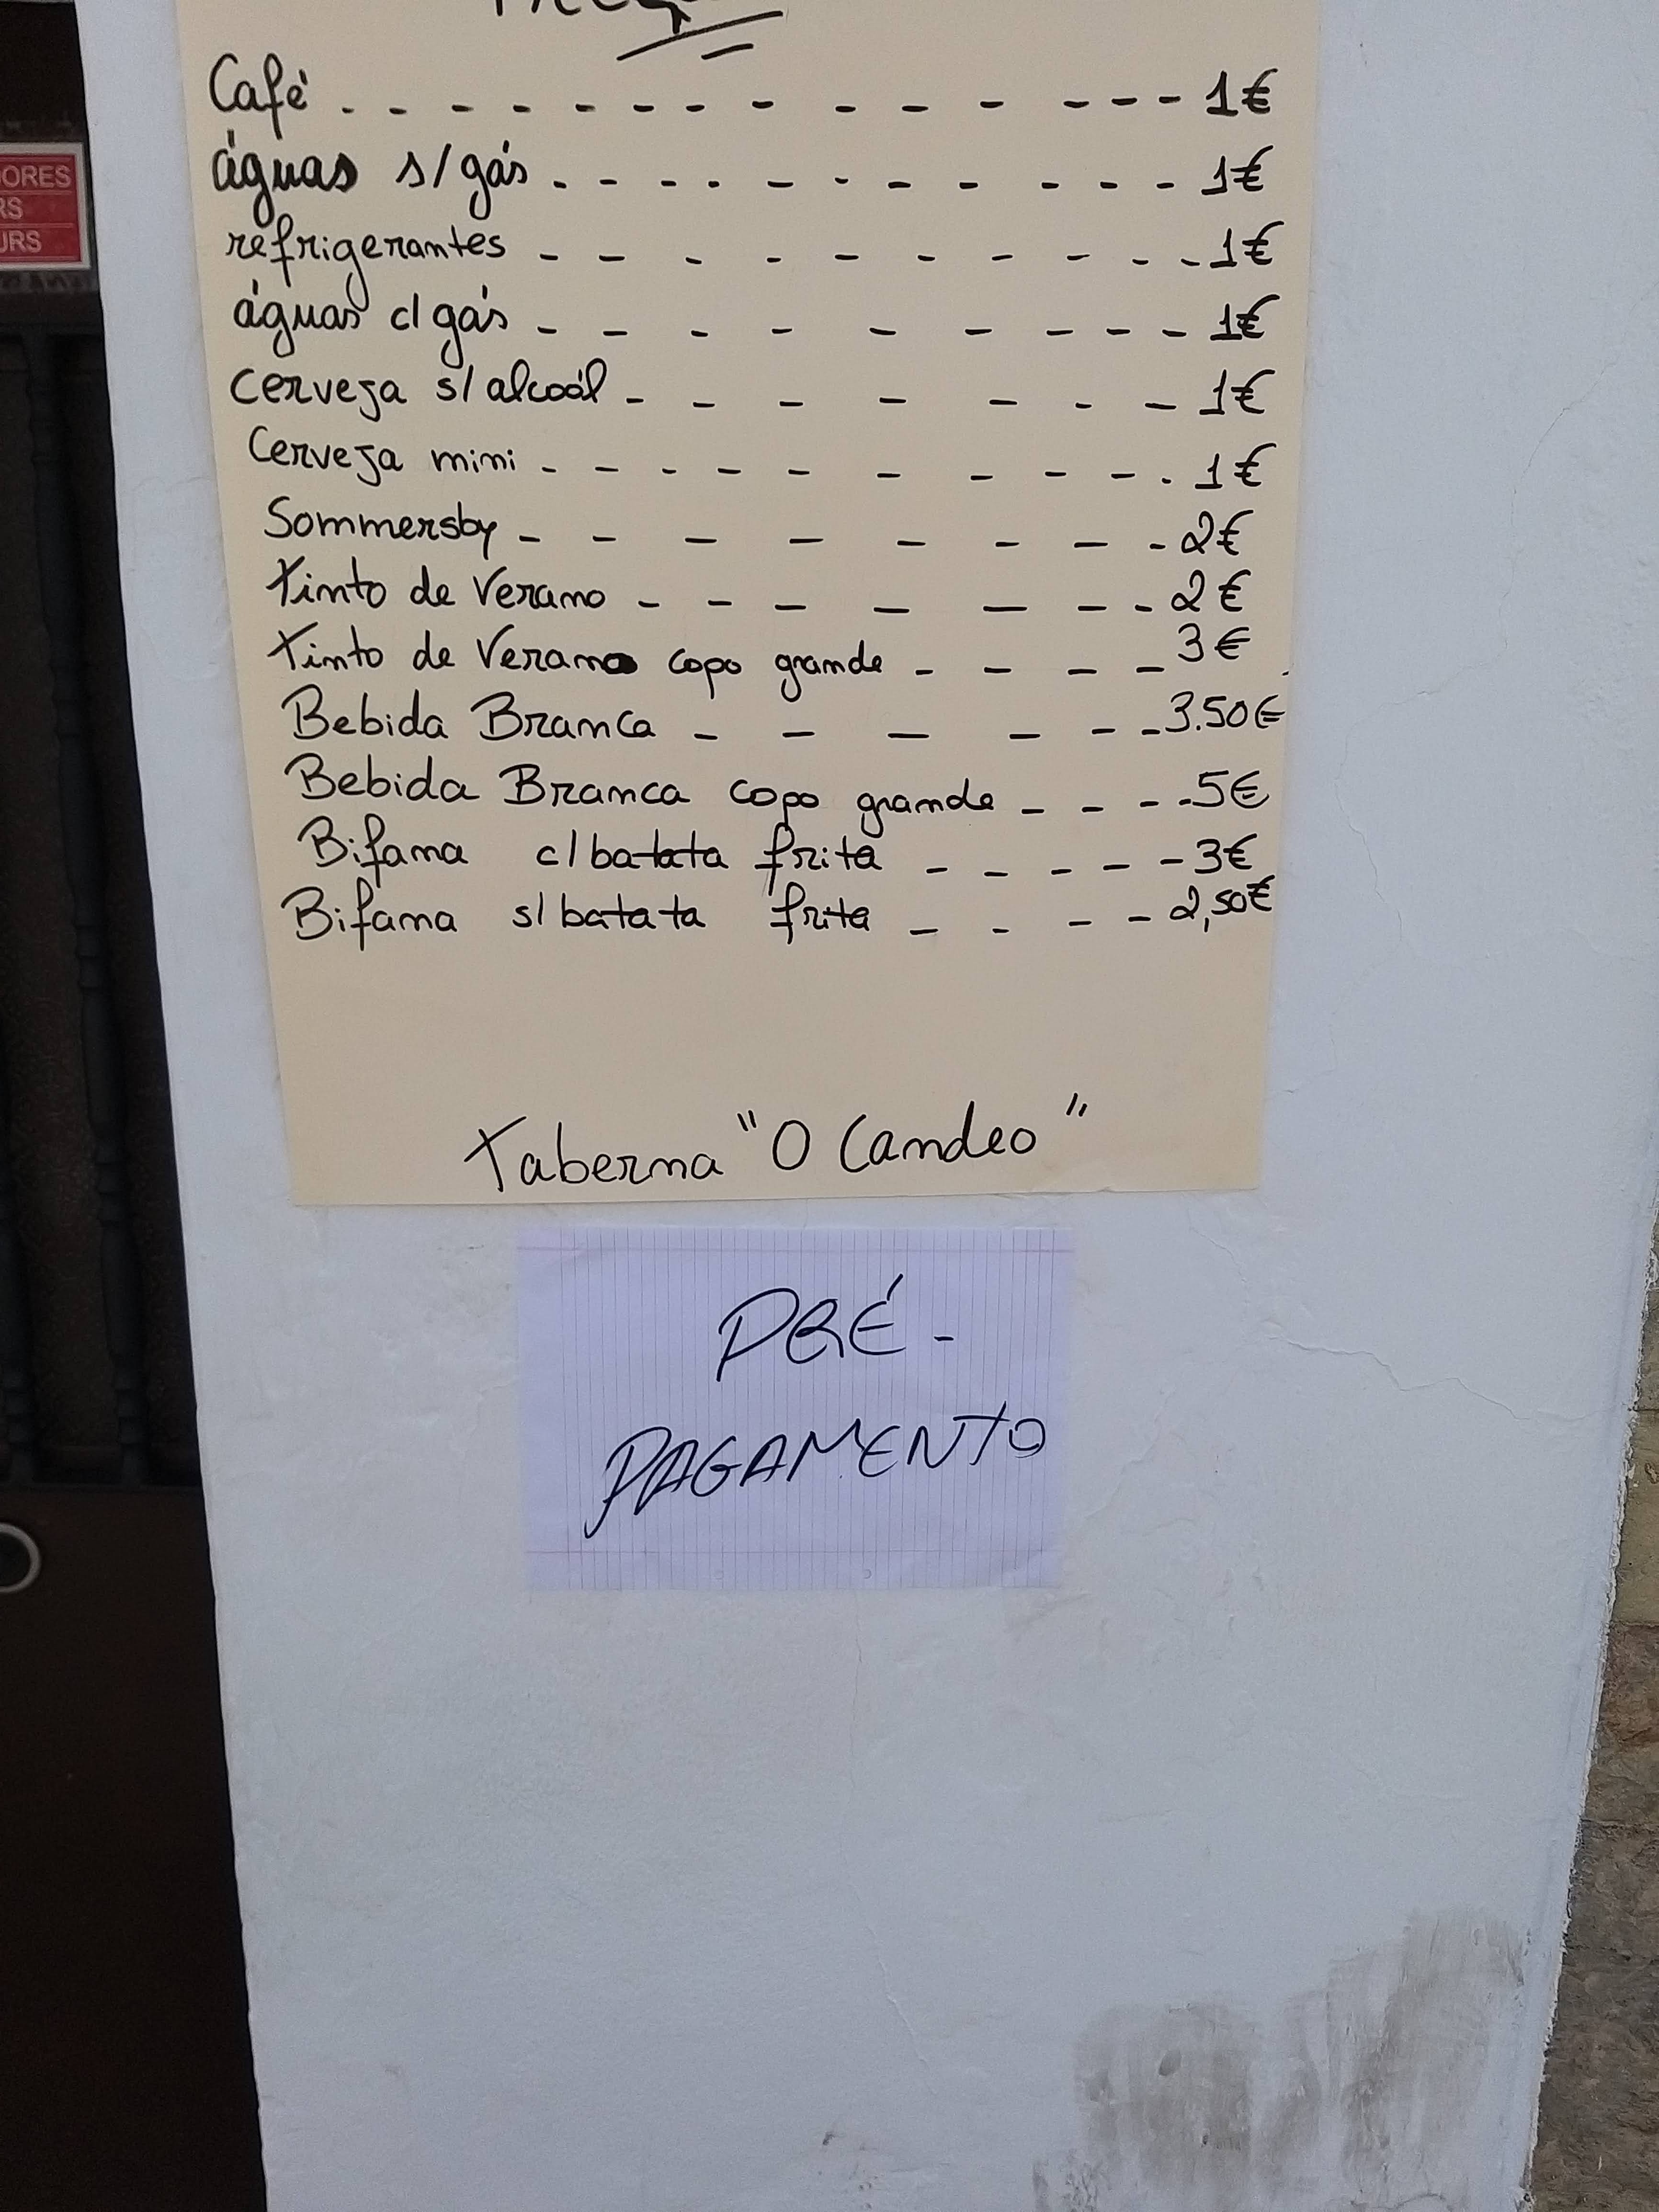 Café - - - - - - - - - - - - - - 1€
águas s/gás - - - - - - - - - - - 1€
refrigerantes - - - - - - - - - - 1€
águas c/gás - - - - - - - - - 1€
cerveja s/alcoól - - - - - - - 1€
Cerveja mini - - - - - - - - - - . 1€
Sommersby - - - - - - - - 2€
Tinto de Verano - - - - - - - 2€
Tinto de Verano copo grande - - - - 3€
Bebida Branca - - - - - - 3.50€
Bebida Branca copo grande - - - - 5€
Bifana c/batata frita - - - - - 3€
Bifana s/batata frita - - - - 2,50€
Taberna "O Candeo"
PRÉ-
PAGAMENTO